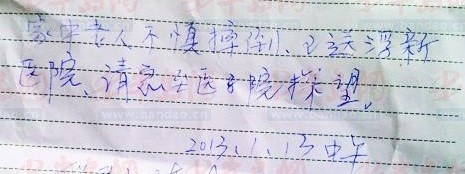 家中老人不慎摔倒、已送浮新
医院、请急去医院探望。
2013.1.13中午